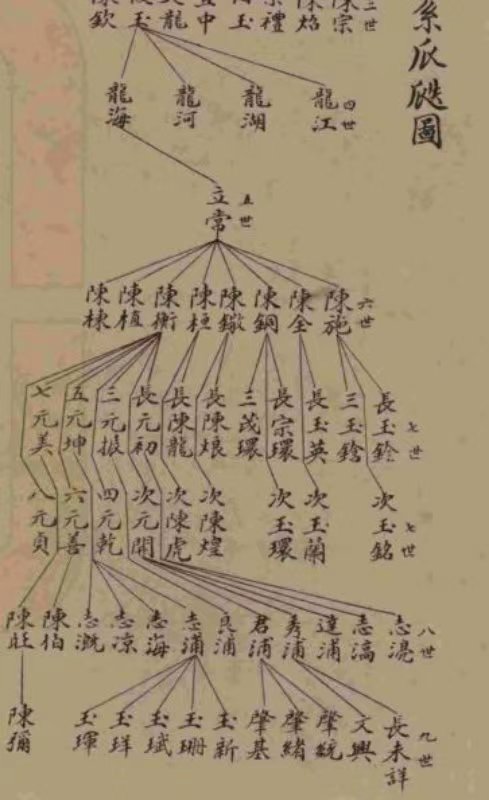 系瓜瓞圖
三世
陳宗
陳焰
宗禮
四世
龍江
龍湖
龍河
龍海
五世
立常
六世
陳施
陳全
陳鋼
陳鐓
陳桓
陳衡
陳植
陳棟
七世
長玉銓
三玉鎗
長玉英
長宗環
三茂環
長陳烺
長陳龍
長元初
三元振
五元坤
七元美
七世
次玉銘
次玉蘭
次玉環
次陳煌
次陳虎
次元開
四元乾
六元善
八元貞
八世
志滉
志滈
達浦
秀浦
君浦
良浦
志浦
志海
志凉
志溉
陳伯
陳旺
九世
長未詳
文興
肇統
肇緒
肇基
玉新
玉珊
玉斌
玉珜
玉琿
陳彌